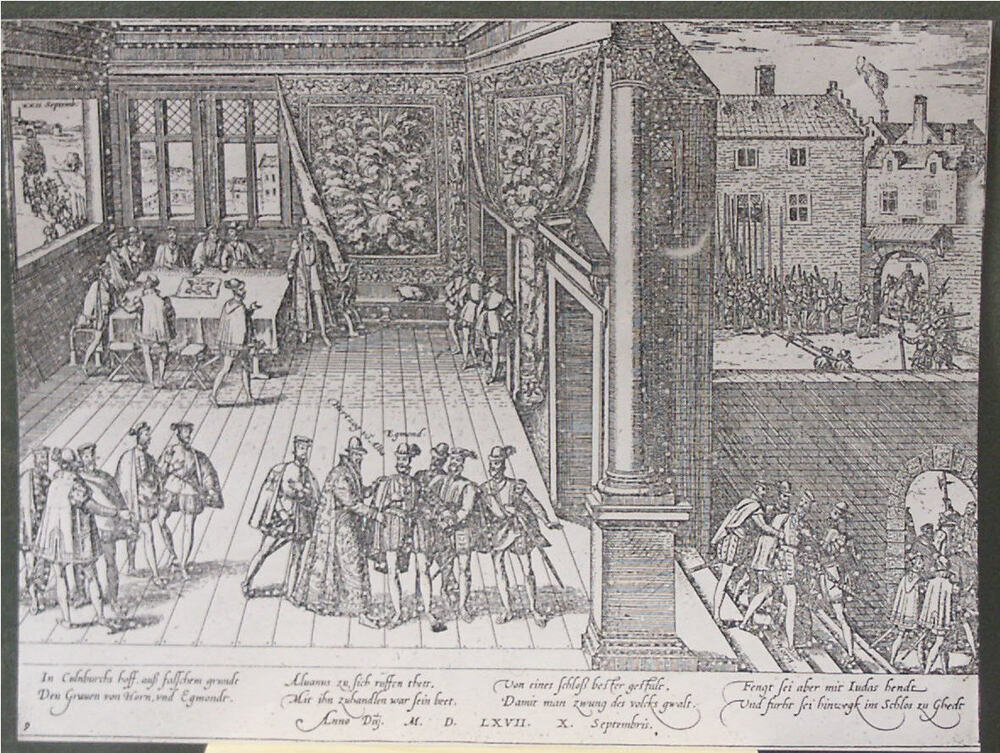 XXII Septemb.
Egmond
In Culnburchs hoff. auß falschem grundt
Den Grauen von Horn, vnd Egmondt.
Aluanus zu sich ruffen thett.
Mit ihn zuhandlen war sein beet.
Von eines schloß bester gestält.
Damit man zwung des volcks gwalt.
Fengt sei aber mit Iudas hendt
Vnd furht sei hinwegk ins Schlos zu Ghedt
Anno Dñj. M. D. LXVII. X. Septembris.
9